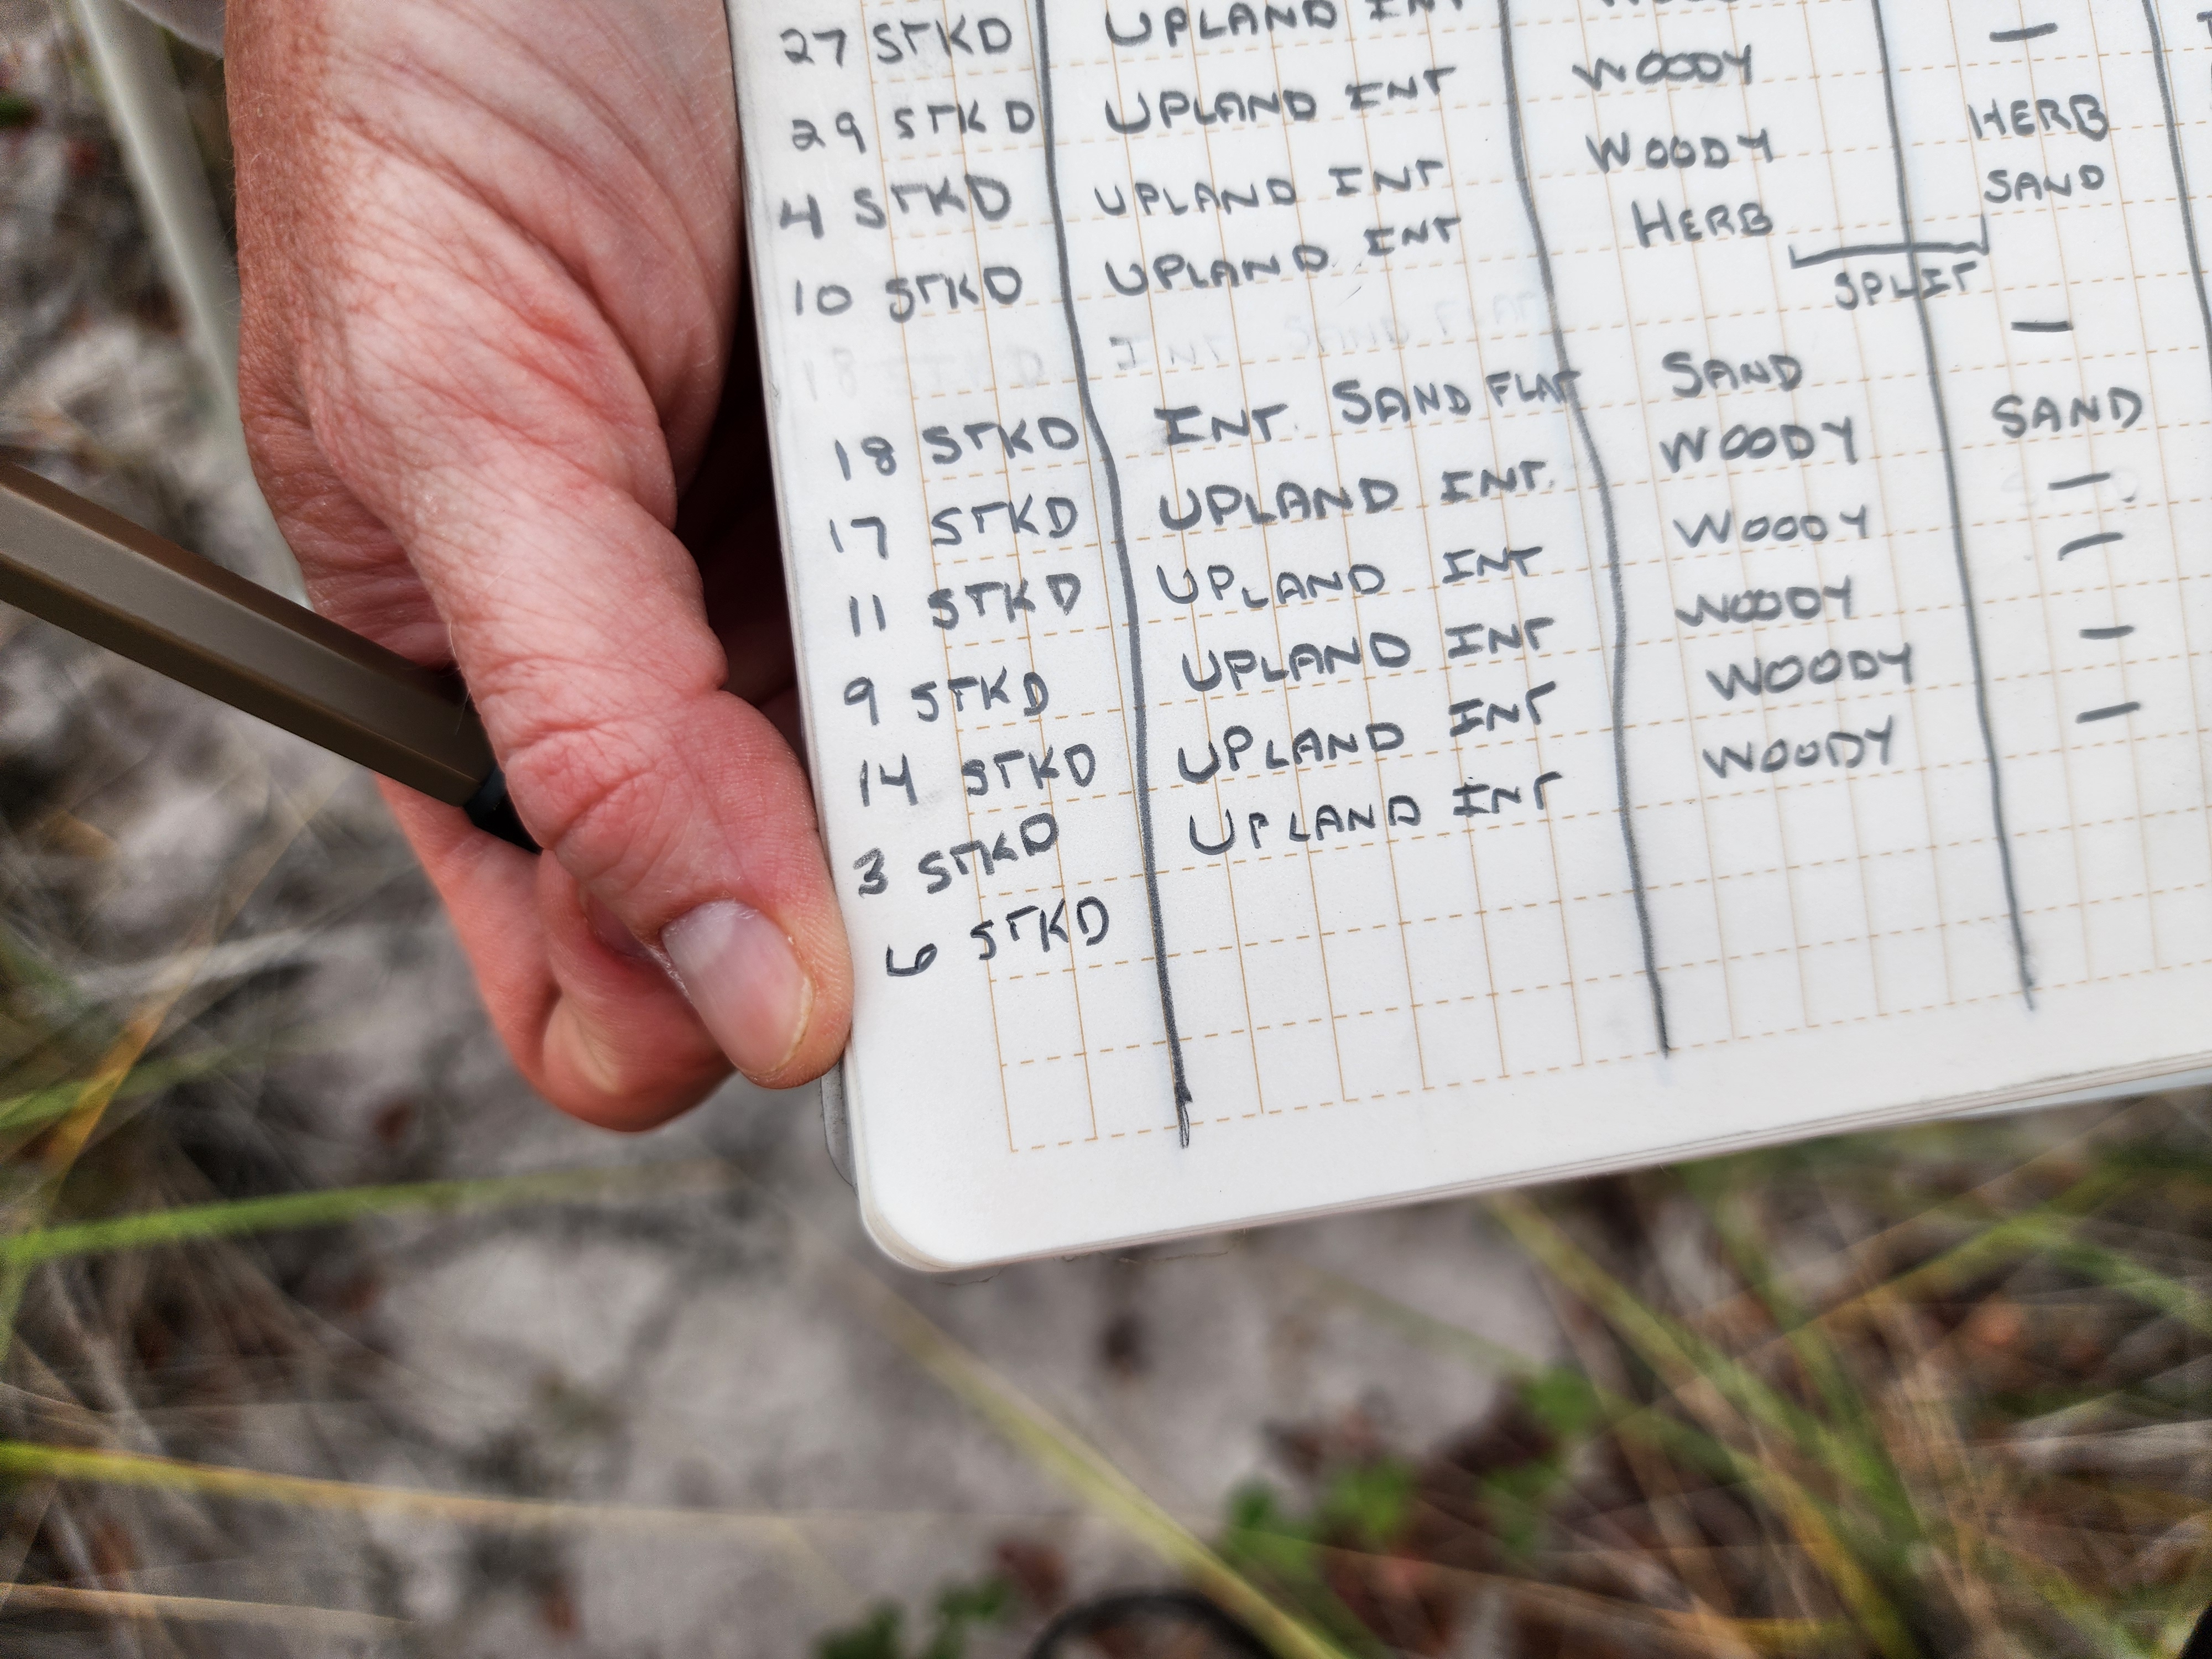 27 STKD UPLAND INT
29 STKD UPLAND INT WOODY —
4 STKD UPLAND INT WOODY HERB
10 STKD UPLAND INT HERB SAND
SPLIT
18 STKD INT SAND FLAT
18 STKD INT. SAND FLAT SAND —
17 STKD UPLAND INT. WOODY SAND
11 STKD UPLAND INT WOODY —
9 STKD UPLAND INT WOODY —
14 STKD UPLAND INT WOODY —
3 STKD UPLAND INT WOODY —
6 STKD